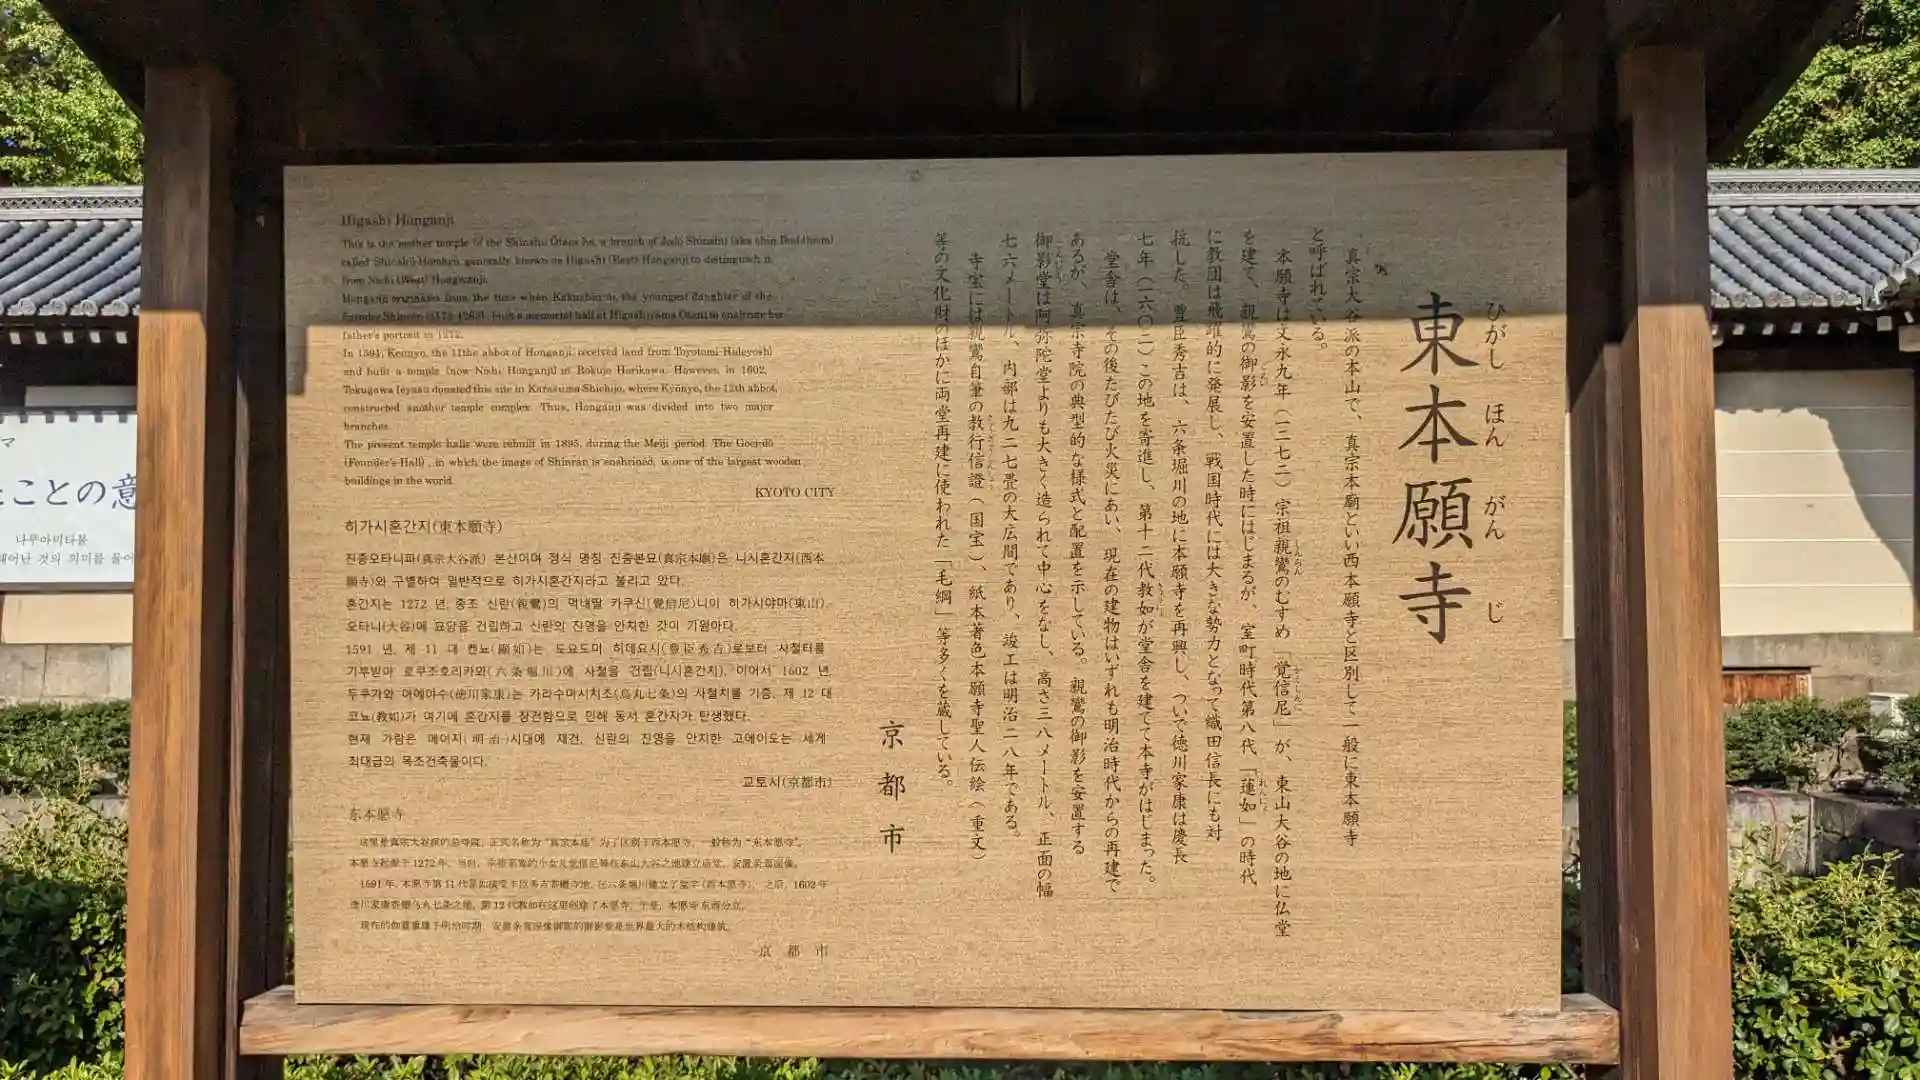 東本願寺
ひがし ほん がん じ
真宗大谷派の本山で、真宗本廟といい西本願寺と区別して一般に東本願寺
と呼ばれている。
本願寺は文永九年（一二七二）宗祖親鸞のむすめ「覚信尼」が、東山大谷の地に仏堂
を建て、親鸞の御影を安置した時にはじまるが、室町時代第八代「蓮如」の時代
に教団は飛躍的に発展し、戦国時代には大きな勢力となって織田信長にも対
抗した。豊臣秀吉は、六条堀川の地に本願寺を再興し、ついで徳川家康は慶長
七年（一六〇二）この地を寄進し、第十二代教如が堂舎を建てて本寺がはじまった。
堂舎は、その後たびたび火災にあい、現在の建物はいずれも明治時代からの再建で
あるが、真宗寺院の典型的な様式と配置を示している。親鸞の御影を安置する
御影堂は阿弥陀堂よりも大きく造られて中心をなし、高さ三八メートル、正面の幅
七六メートル、内部は九二七畳の大広間であり、竣工は明治二八年である。
寺宝には親鸞自筆の教行信證（国宝）、紙本著色本願寺聖人伝絵（重文）
等の文化財のほかに両堂再建に使われた「毛綱」等多くを蔵している。
京都市
Higashi Honganji
This is the mother temple of the Shinshu Ōtani-ha, a branch of Jodo Shinshu (aka Shin Buddhism)
called Shinshū Honbyō, generally known as Higashi (East) Honganji to distinguish it
from Nishi (West) Hongwanji.
Honganji originates from the time when Kakushin-ni, the youngest daughter of the
founder Shinran (1173-1262), built a memorial hall at Higashiyama Otani to enshrine her
father's portrait in 1272.
In 1591, Kennyo, the 11the abbot of Honganji, received land from Toyotomi Hideyoshi
and built a temple (now Nishi Honganji) in Rokujo Horikawa. However, in 1602,
Tokugawa Ieyasu donated this site in Karasuma Shichijo, where Kyōnyo, the 12th abbot,
constructed another temple complex. Thus, Honganji was divided into two major
branches.
The present temple halls were rebuilt in 1895, during the Meiji period. The Goei-dō
(Founder's Hall), in which the image of Shinran is enshrined, is one of the largest wooden
buildings in the world.
KYOTO CITY
히가시혼간지(東本願寺)
진종오타니파(真宗大谷派) 본산이며 정식 명칭 진종본묘(真宗本廟)은 니시혼간지(西本
願寺)와 구별하여 일반적으로 히가시혼간지라고 불리고 있다.
혼간지는 1272 년, 종조 신란(親鸞)의 막내딸 카쿠신(覺信尼)니이 히가시야마(東山)
오타니(大谷)에 묘당을 건립하고 신란의 진영을 안치한 것이 기원이다.
1591 년, 제 11 대 켄뇨(顯如)는 도요도미 히데요시(豊臣秀吉)로부터 사철터를
기부받아 로쿠조호리카와(六条堀川)에 사철을 건립(니시혼간지), 이어서 1602 년,
두쿠가와 이에야수(徳川家康)는 카라수마시치조(烏丸七条)의 사철치를 기증, 제 12 대
쿄뇨(教如)가 여기에 혼간지를 창건함으로 인해 동서 혼간지가 탄생했다.
현재 가람은 메이지(明治)시대에 재건, 신란의 진영을 안치한 고에이도는 세계
최대급의 목조건축물이다.
교토시(京都市)
东本愿寺
这里是真宗大谷派的总寺院，正式名称为“真宗本庙”为了区别于西本愿寺，一般称为“东本愿寺”。
1591年，本愿寺第11代显如接受丰臣秀吉寄赠寺地，在六条堀川建立了堂宇（西本愿寺），之后，1602年
德川家康寄赠乌丸七条之地，第12代教如在这里创建了本愿寺，于是，本愿寺东西分立。
京都市
マ
ことの意
나무아미타불
태어난 것의 의미를 물어